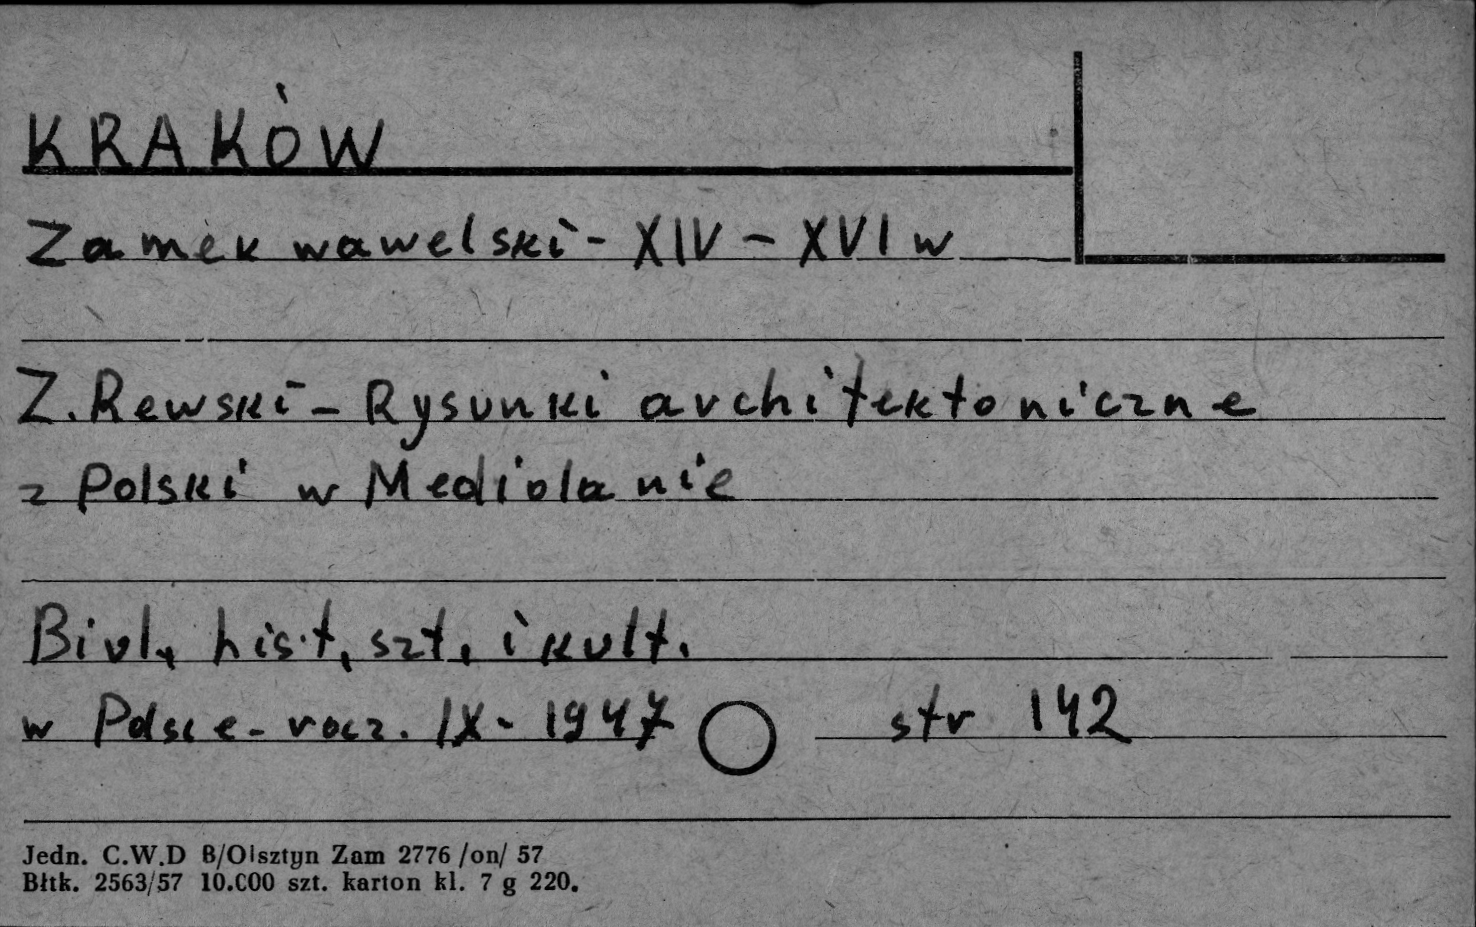 KRAKÓW
Zamek wawelski - XIV - XVI w
Z. Rewski - Rysunki architektoniczne
z Polski w Mediolanie
Biul. hist. szt. i kult.
w Polsce - rocz. IX - 1947 str 142
Jedn. C.W.D B/Olsztyn Zam 2776 /on/ 57
Błtk. 2563/57 10.000 szt. karton kl. 7 g 220.